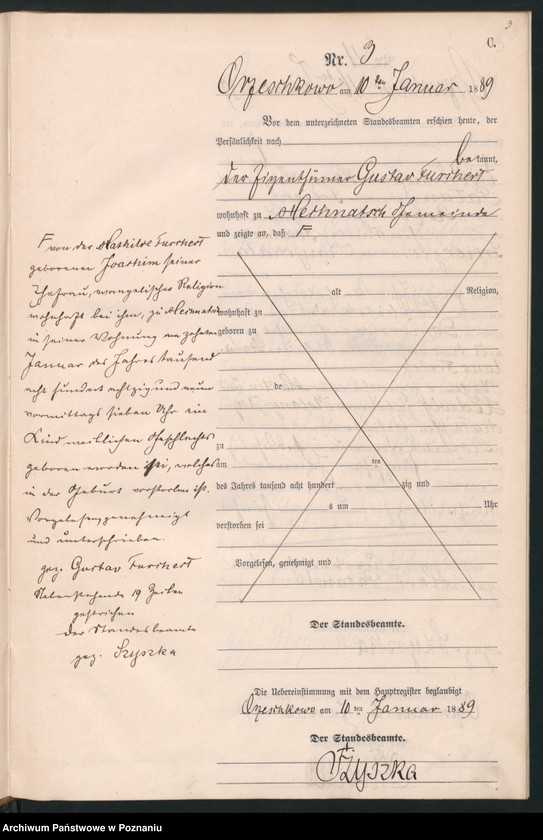 3
C.
Nr. 3
Orzeschkowo am 10ten Januar 1889
Vor dem unterzeichneten Standesbeamten erschien heute, der
Persönlichkeit nach
bekannt,
der Eigenthümer Gustav Furchert
wohnhaft zu Gemeinde
und zeigte an, daß F
F von der Mathilde Furchert
geborenen Joachim seiner
Ehefrau, evangelischer Religion
wohnhaft bei ihm, zu
in seiner Wohnung am zehnten
Januar des Jahres tausend
acht hundert achtzig und neun
vormittags sieben Uhr ein
Kind weiblichen Geschlechts
geboren worden sei, welches
in der Geburt verstorben ist.
Vorgelesen, genehmigt
und unterschrieben.
gez. Gustav Furchert
Nebenstehende 19 Zeilen
gestrichen
Der Standesbeamte
gez. Szyszka
alt Religion,
wohnhaft zu
geboren zu
de
zu
am ten
des Jahres tausend acht hundert zig und
s um Uhr
verstorben sei
Vorgelesen, genehmigt und
Der Standesbeamte.
Die Uebereinstimmung mit dem Hauptregister beglaubigt
Orzeschkowo am 10ten Januar 1889
Der Standesbeamte.
Szyszka
Archiwum Państwowe w Poznaniu